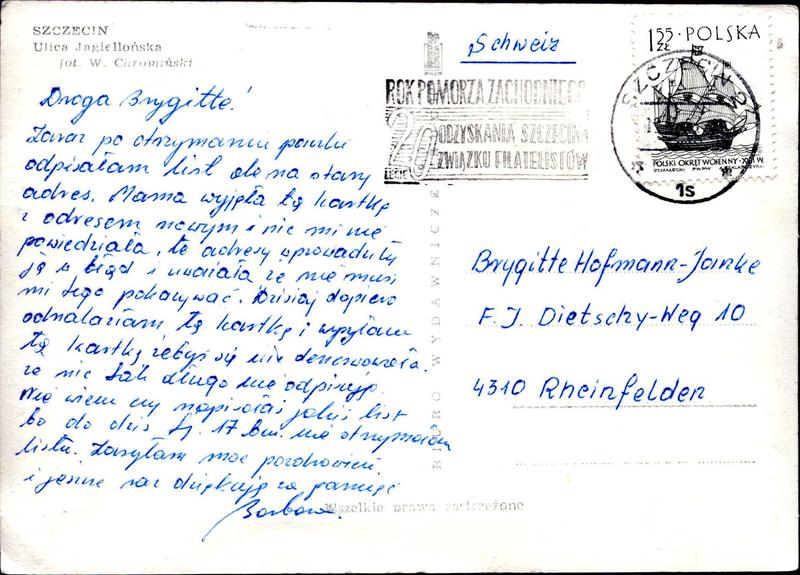 SZCZECIN
Ulica Jagiellońska
fot. W. Chromiński
Droga Brygitte!
Zaraz po otrzymaniu paczki
odpisałam list ale na stary
adres. Mama wyjęła tę kartkę
z adresem nowym i nic mi nie
powiedziała, te adresy wprowadziły
ją w błąd i uważała że nie musi
mi tego pokazywać. Dzisiaj dopiero
odnalazłam tę kartkę i wysyłam
tę kartkę żebyś się nie denerwowała.
że nic tak długo nie odpisuję.
Nie wiem czy napisałaś jakiś list
bo do dziś tj. 17 bm. nie otrzymałam
listu. Zasyłam moc pozdrowień
i jeszcze raz dziękuję za pamięć
Barbara.
BIURO WYDAWNICZE
Wszelkie prawa zastrzeżone
Schweiz
ROK POMORZA ZACHODNIEGO
20 LECIE
ODZYSKANIA SZCZECINA
ZWIĄZKU FILATELISTÓW
1,55 ZŁ · POLSKA
POLSKI OKRĘT WOJENNY · XVII W.
PWPW
SZCZECIN 2
1s
Brygitte Hofmann-Janke
F. J. Dietschy-Weg 10
4310 Rheinfelden